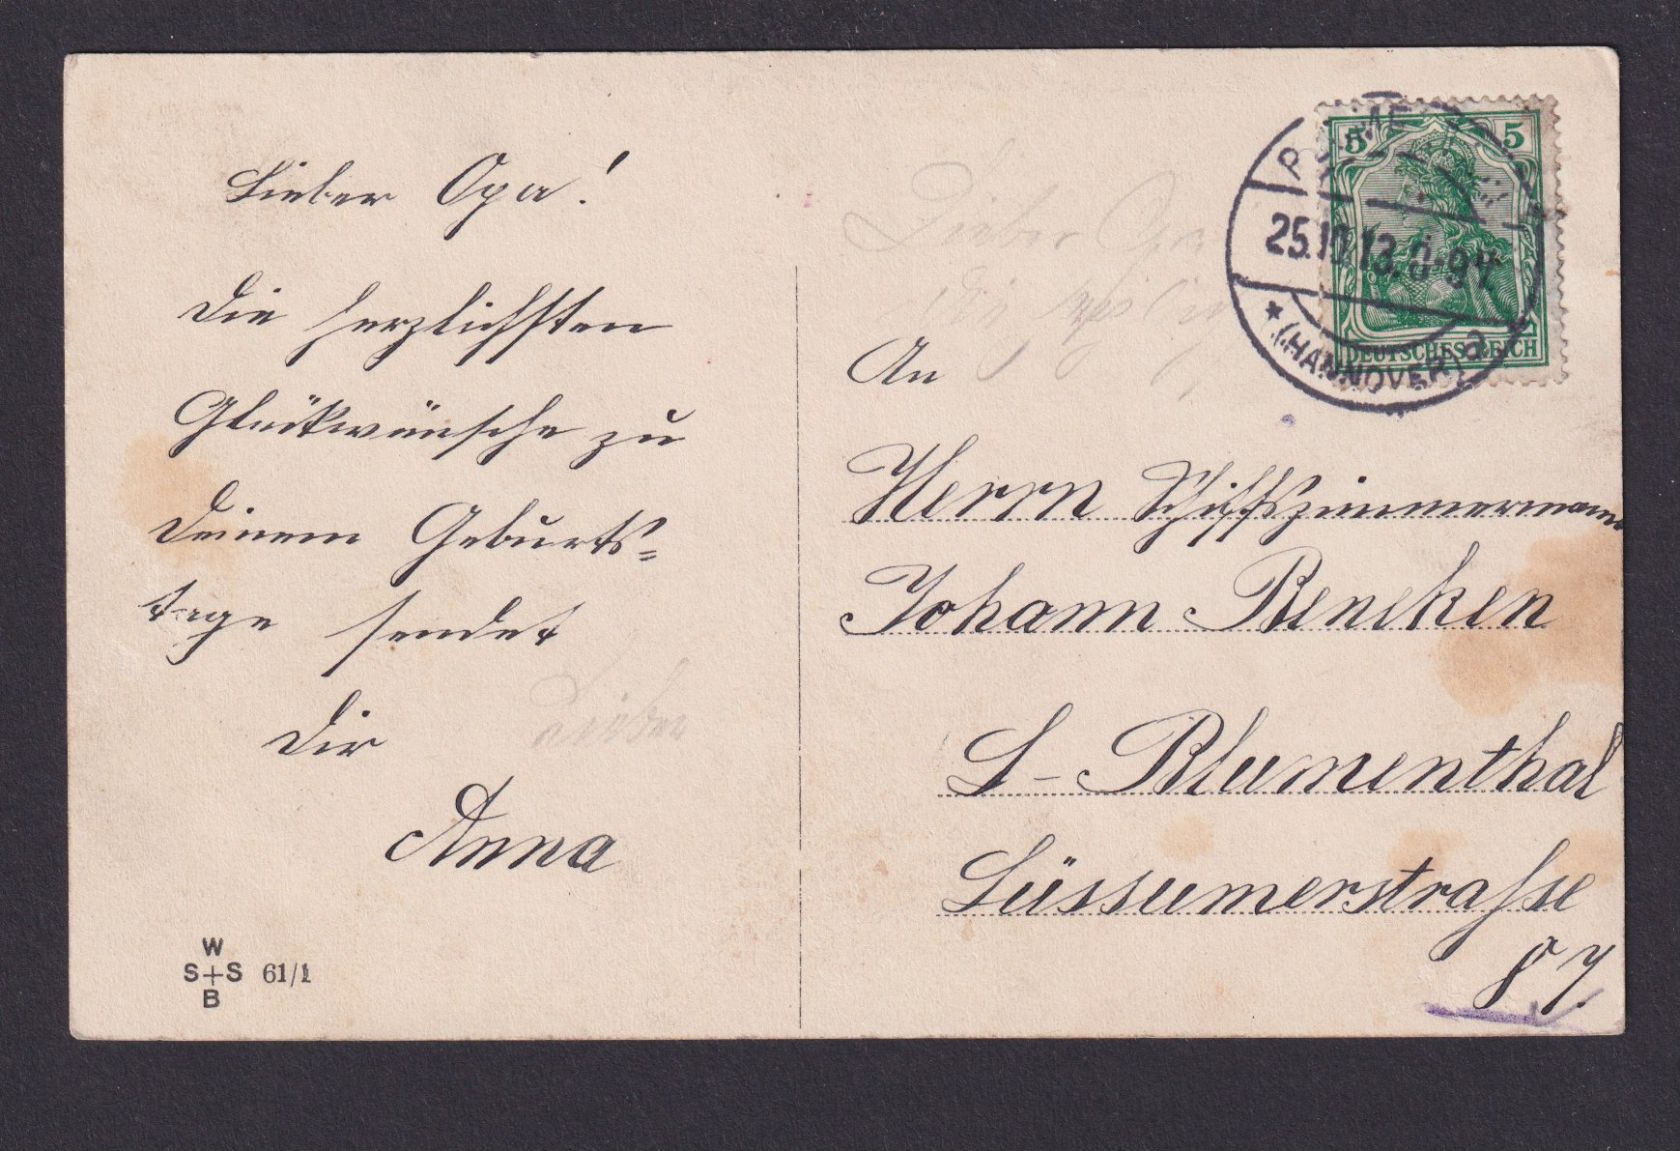 Lieber Opa!
Die herzlichsten
Glückwünsche zu
Deinem Geburts=
tage sendet
Dir
Anna
Lieber
W
S+S 61/1
B
Lieber Opa
Die
5 5
DEUTSCHES REICH
25.10.13. 8-9V
* (HANNOVER) a
An
Herrn Schiffszimmermann
Johann Beneken
L-Blumenthal
Lüssumerstrasse
87